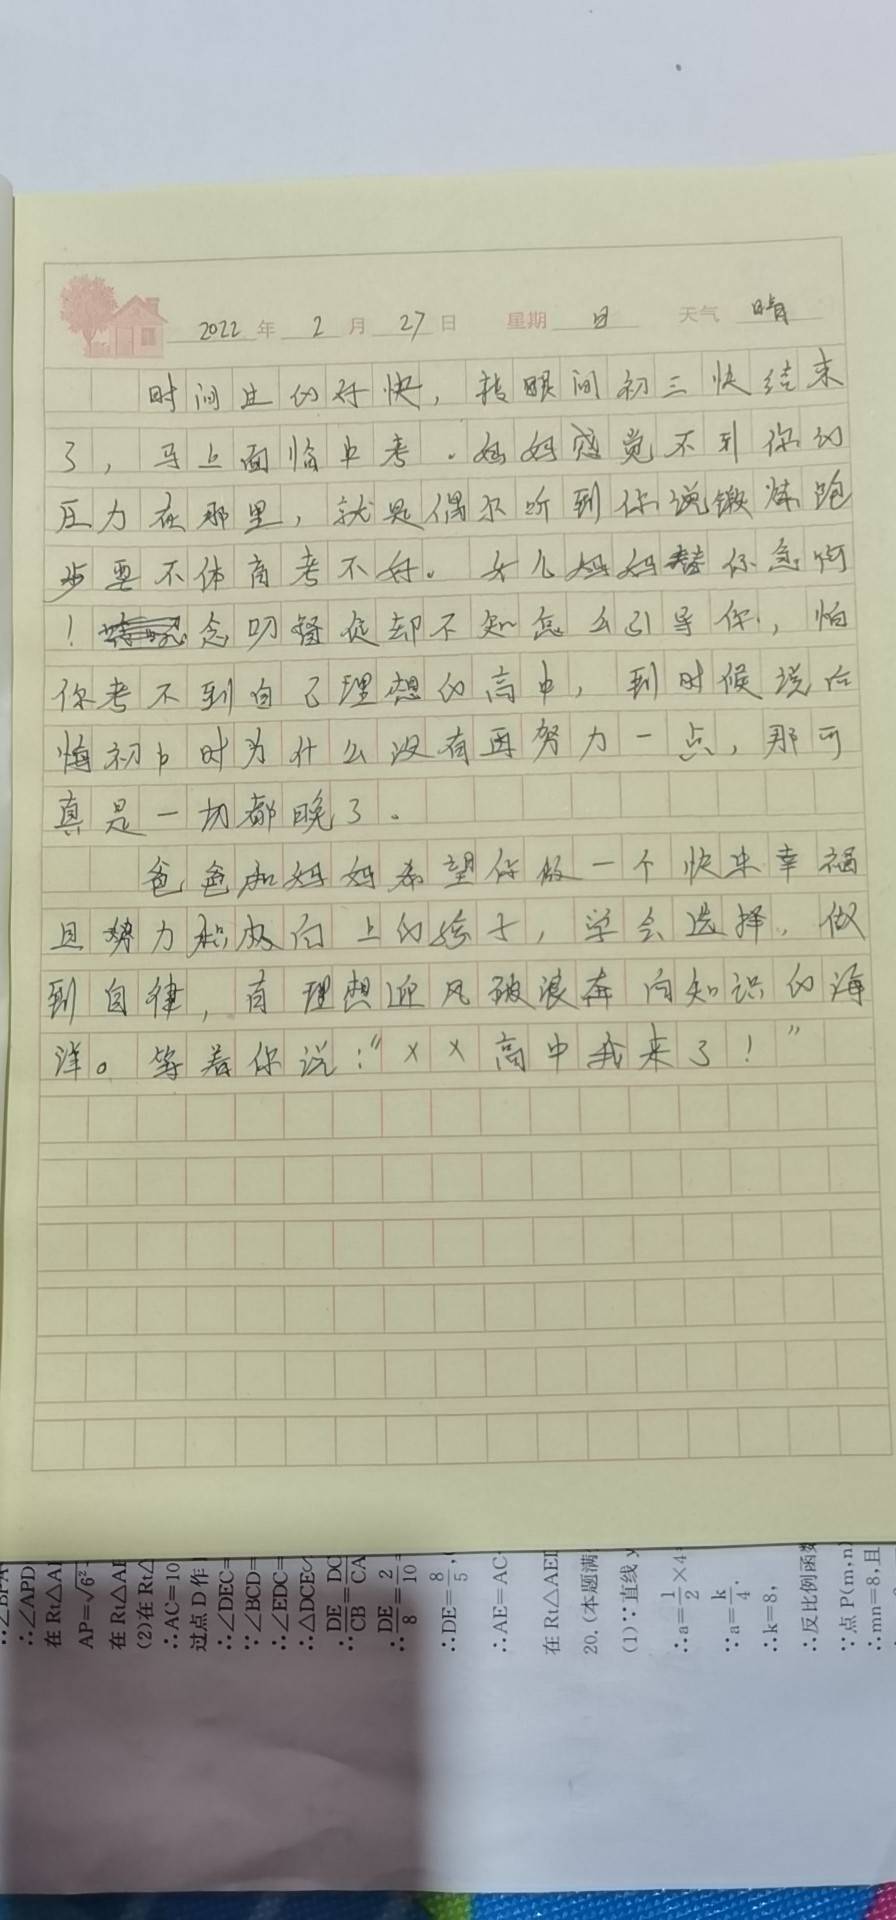 2022 年 2 月 27 日 星期 日 天气 晴
时间过的好快，转眼间初三快结束
了，马上面临中考．妈妈感觉不到你的
压力在那里，就是偶尔听到你说锻炼跑
步要不体育考不好。女儿妈妈替你急啊
！念叨督促却不知怎么引导你，怕
你考不到自己理想的高中，到时候说后
悔初中时为什么没有再努力一点，那可
真是一切都晚了。
爸爸和妈妈希望你做一个快乐幸福
且努力积极向上的孩子，学会选择，做
到自律，有理想迎风破浪奔向知识的海
洋。等着你说：“××高中我来了！”
∴∠APD
在 Rt△A
AP=√6²
在 Rt△A
(2)在 Rt△
∴AC=10
过点 D 作
∴∠DEC=
∴∠BCD=
∴∠EDC=
∴△DCE∽
∴DE/CB=DC/CA
∴DE/8=2/10
∴DE=8/5,
∴AE=AC
在 Rt△AE
20.(本题满
(1)∵直线 y
∴a=1/2×4
∴a=k/4.
∴k=8,
∴反比例函数
∵点 P(m,n
∴mn=8,且